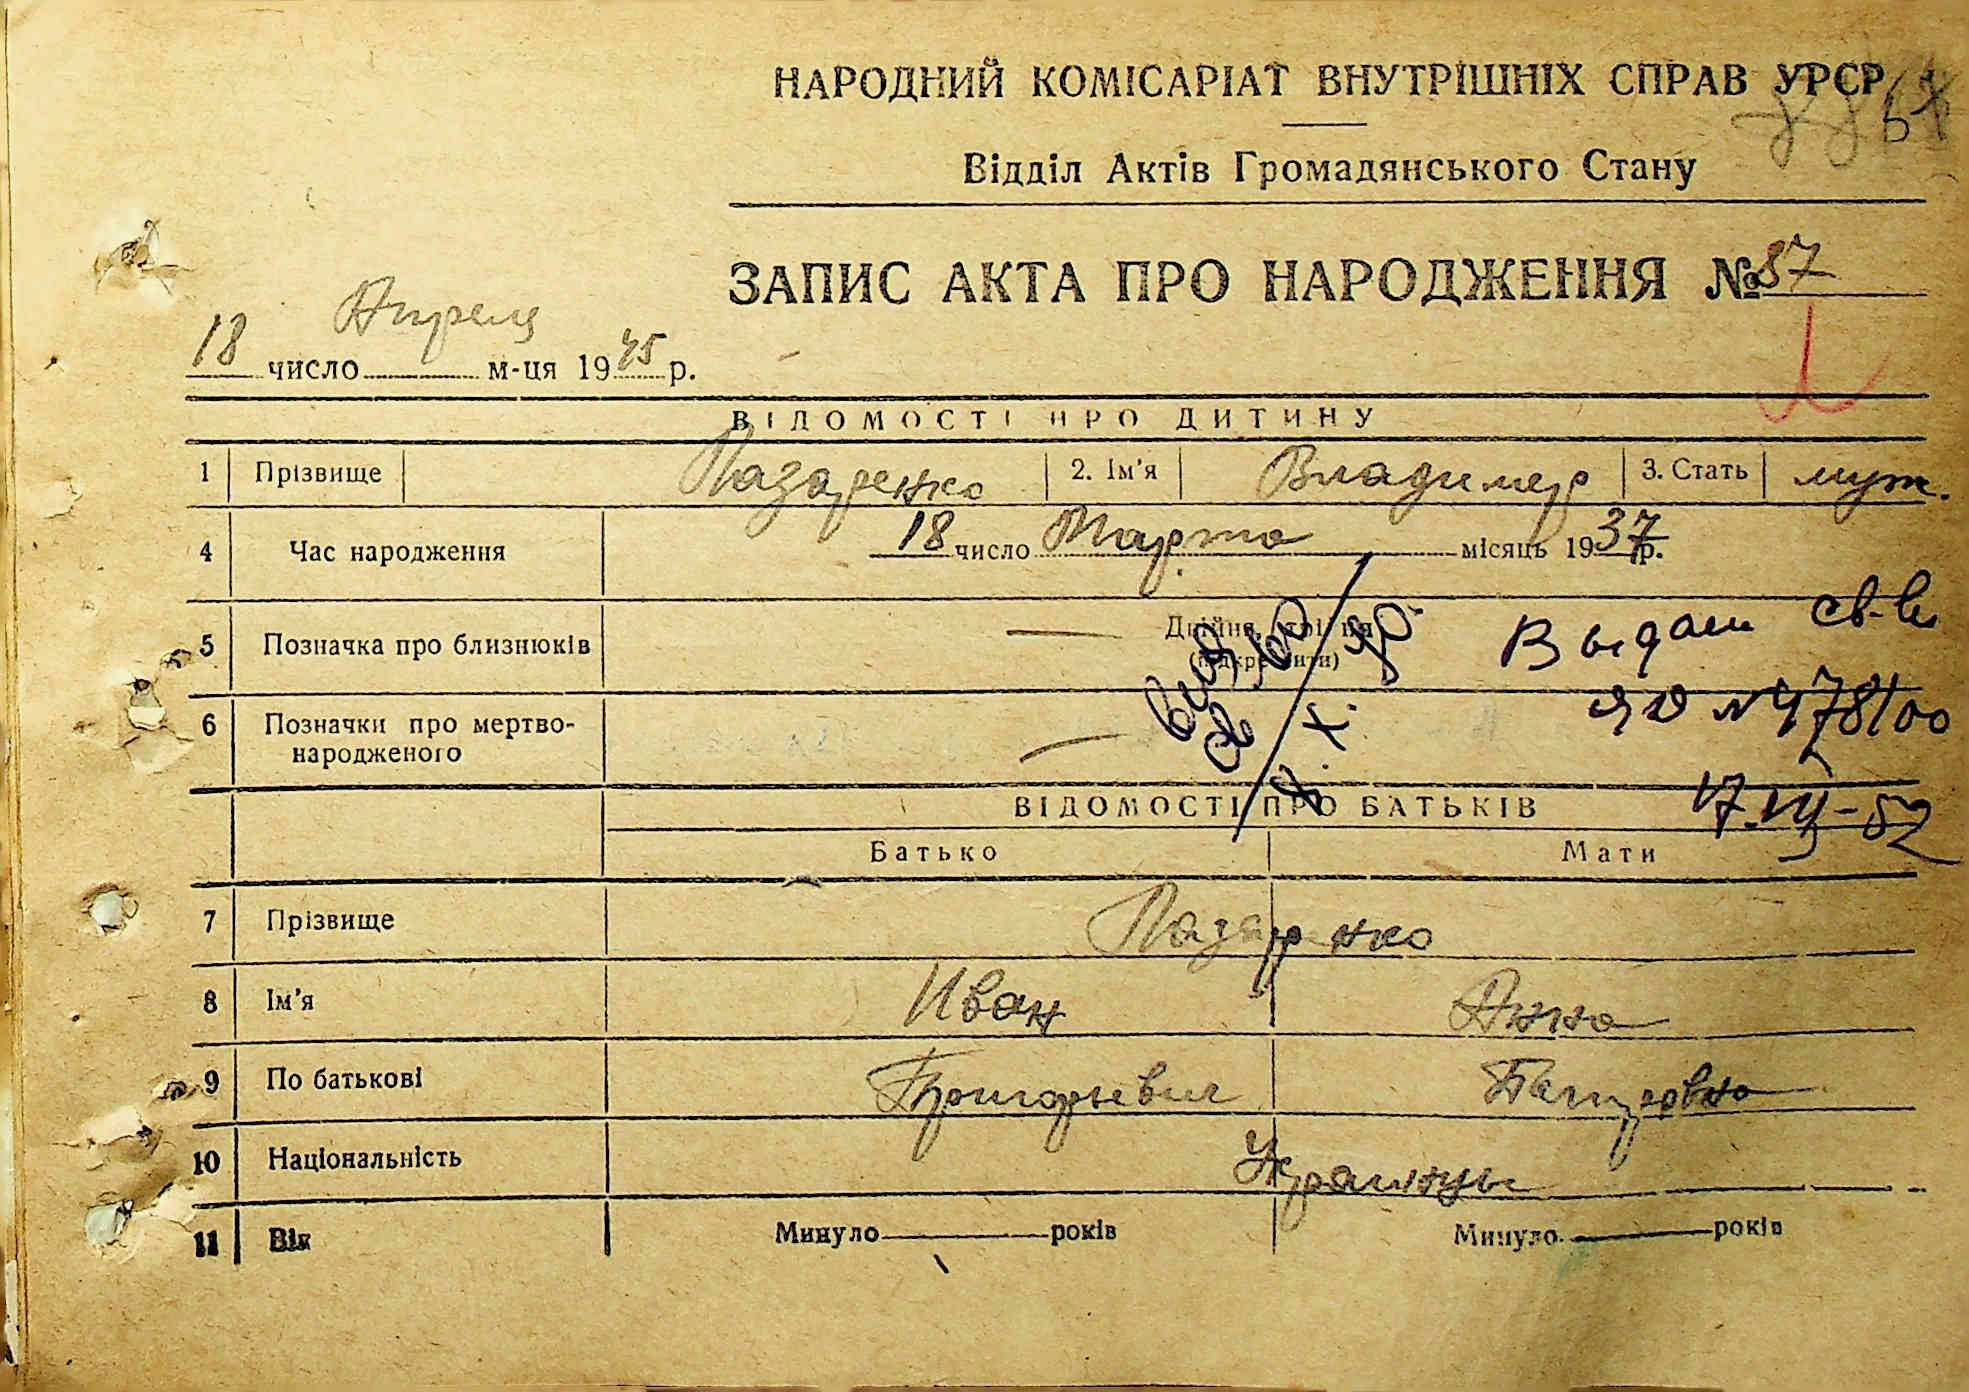 НАРОДНИЙ КОМІСАРІАТ ВНУТРІШНІХ СПРАВ УРСР
Відділ Актів Громадянського Стану
ЗАПИС АКТА ПРО НАРОДЖЕННЯ № 87
18 число Апреля м-ця 1945 р.
ВІДОМОСТІ ПРО ДИТИНУ
1 Прізвище Лазаренко 2. Ім'я Владимер 3. Стать муж.
4 Час народження 18 число Марта місяць 1937 р.
5 Позначка про близнюків Двійня, трійня
(підкреслити)
Выдан св-во
ЯЮ №478100
17.VII-52
6 Позначки про мертво-
народженого
ВІДОМОСТІ ПРО БАТЬКІВ
Батько Мати
7 Прізвище Лазаренко
8 Ім'я Иван Анна
9 По батькові Григорьевич
10 Національність Украинцы
11 Вік Минуло років Минуло років